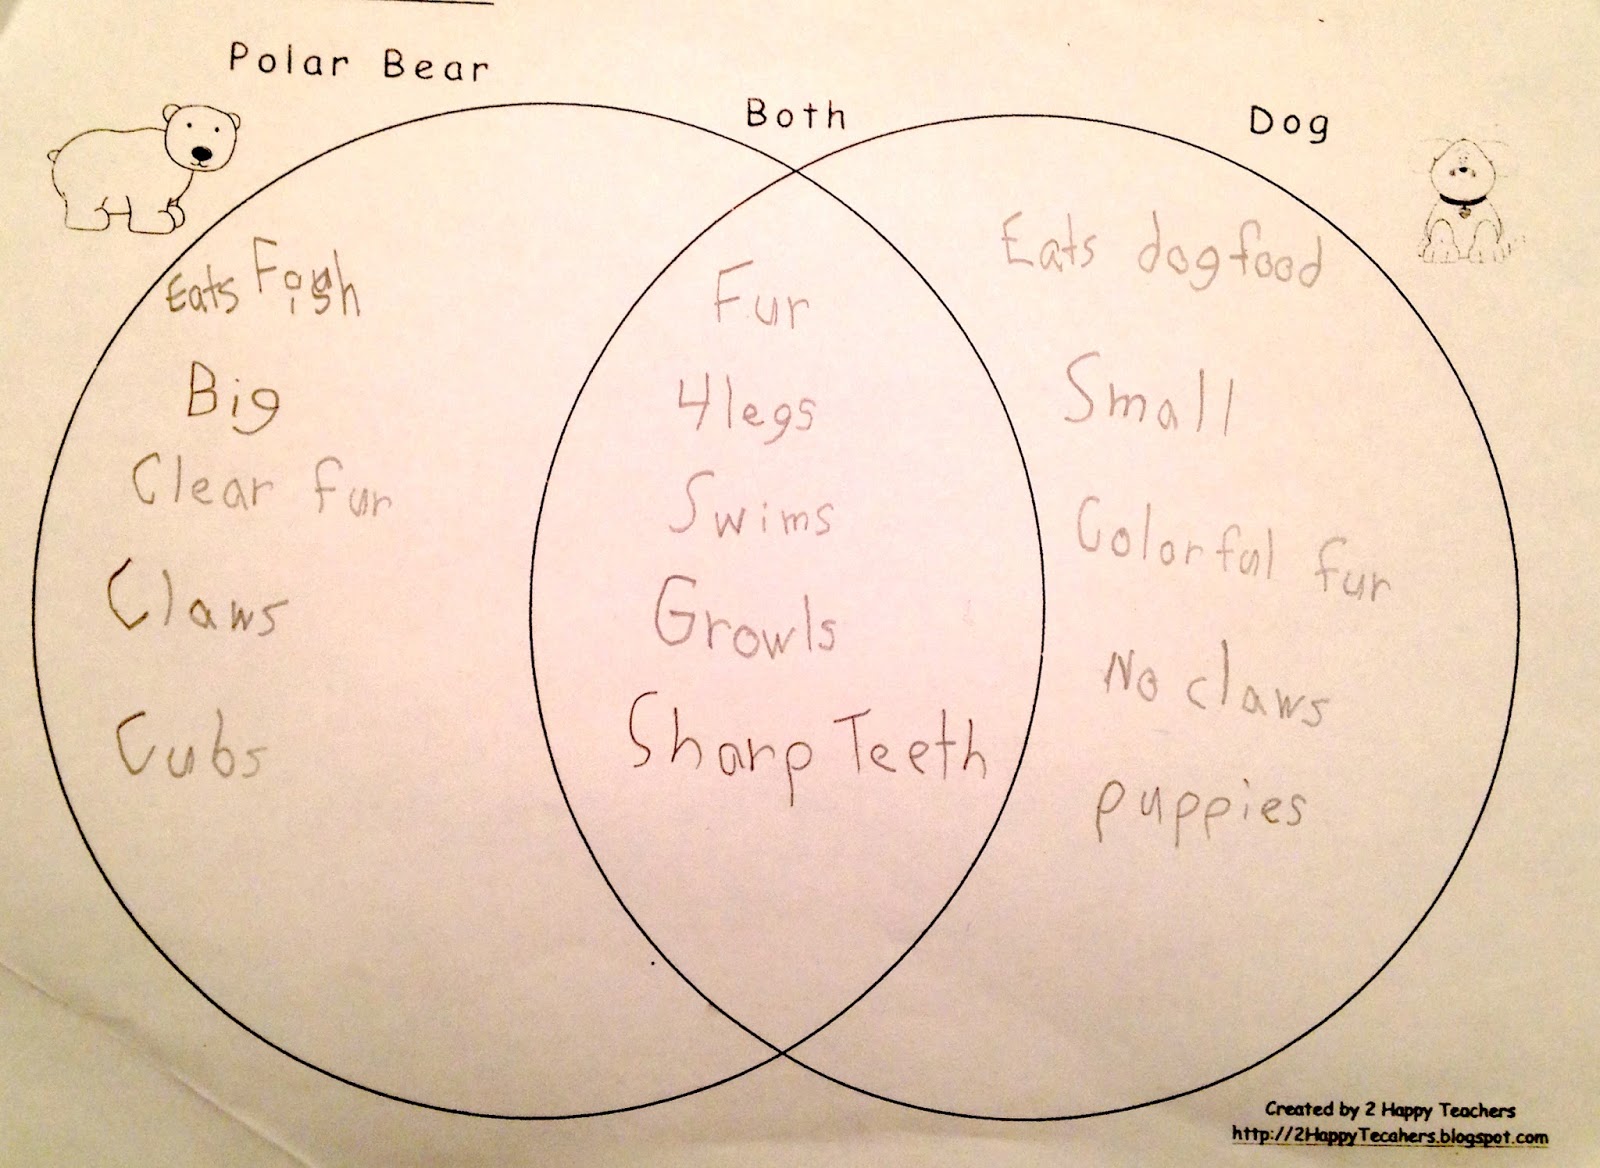 Polar Bear
Both
Dog
Eats Fish
Big
Clear fur
Claws
Cubs
Fur
4legs
Swims
Growls
Sharp Teeth
Eats dogfood
Small
Colorful fur
No claws
puppies
Created by 2 Happy Teachers
http://2HappyTecahers.blogspot.com